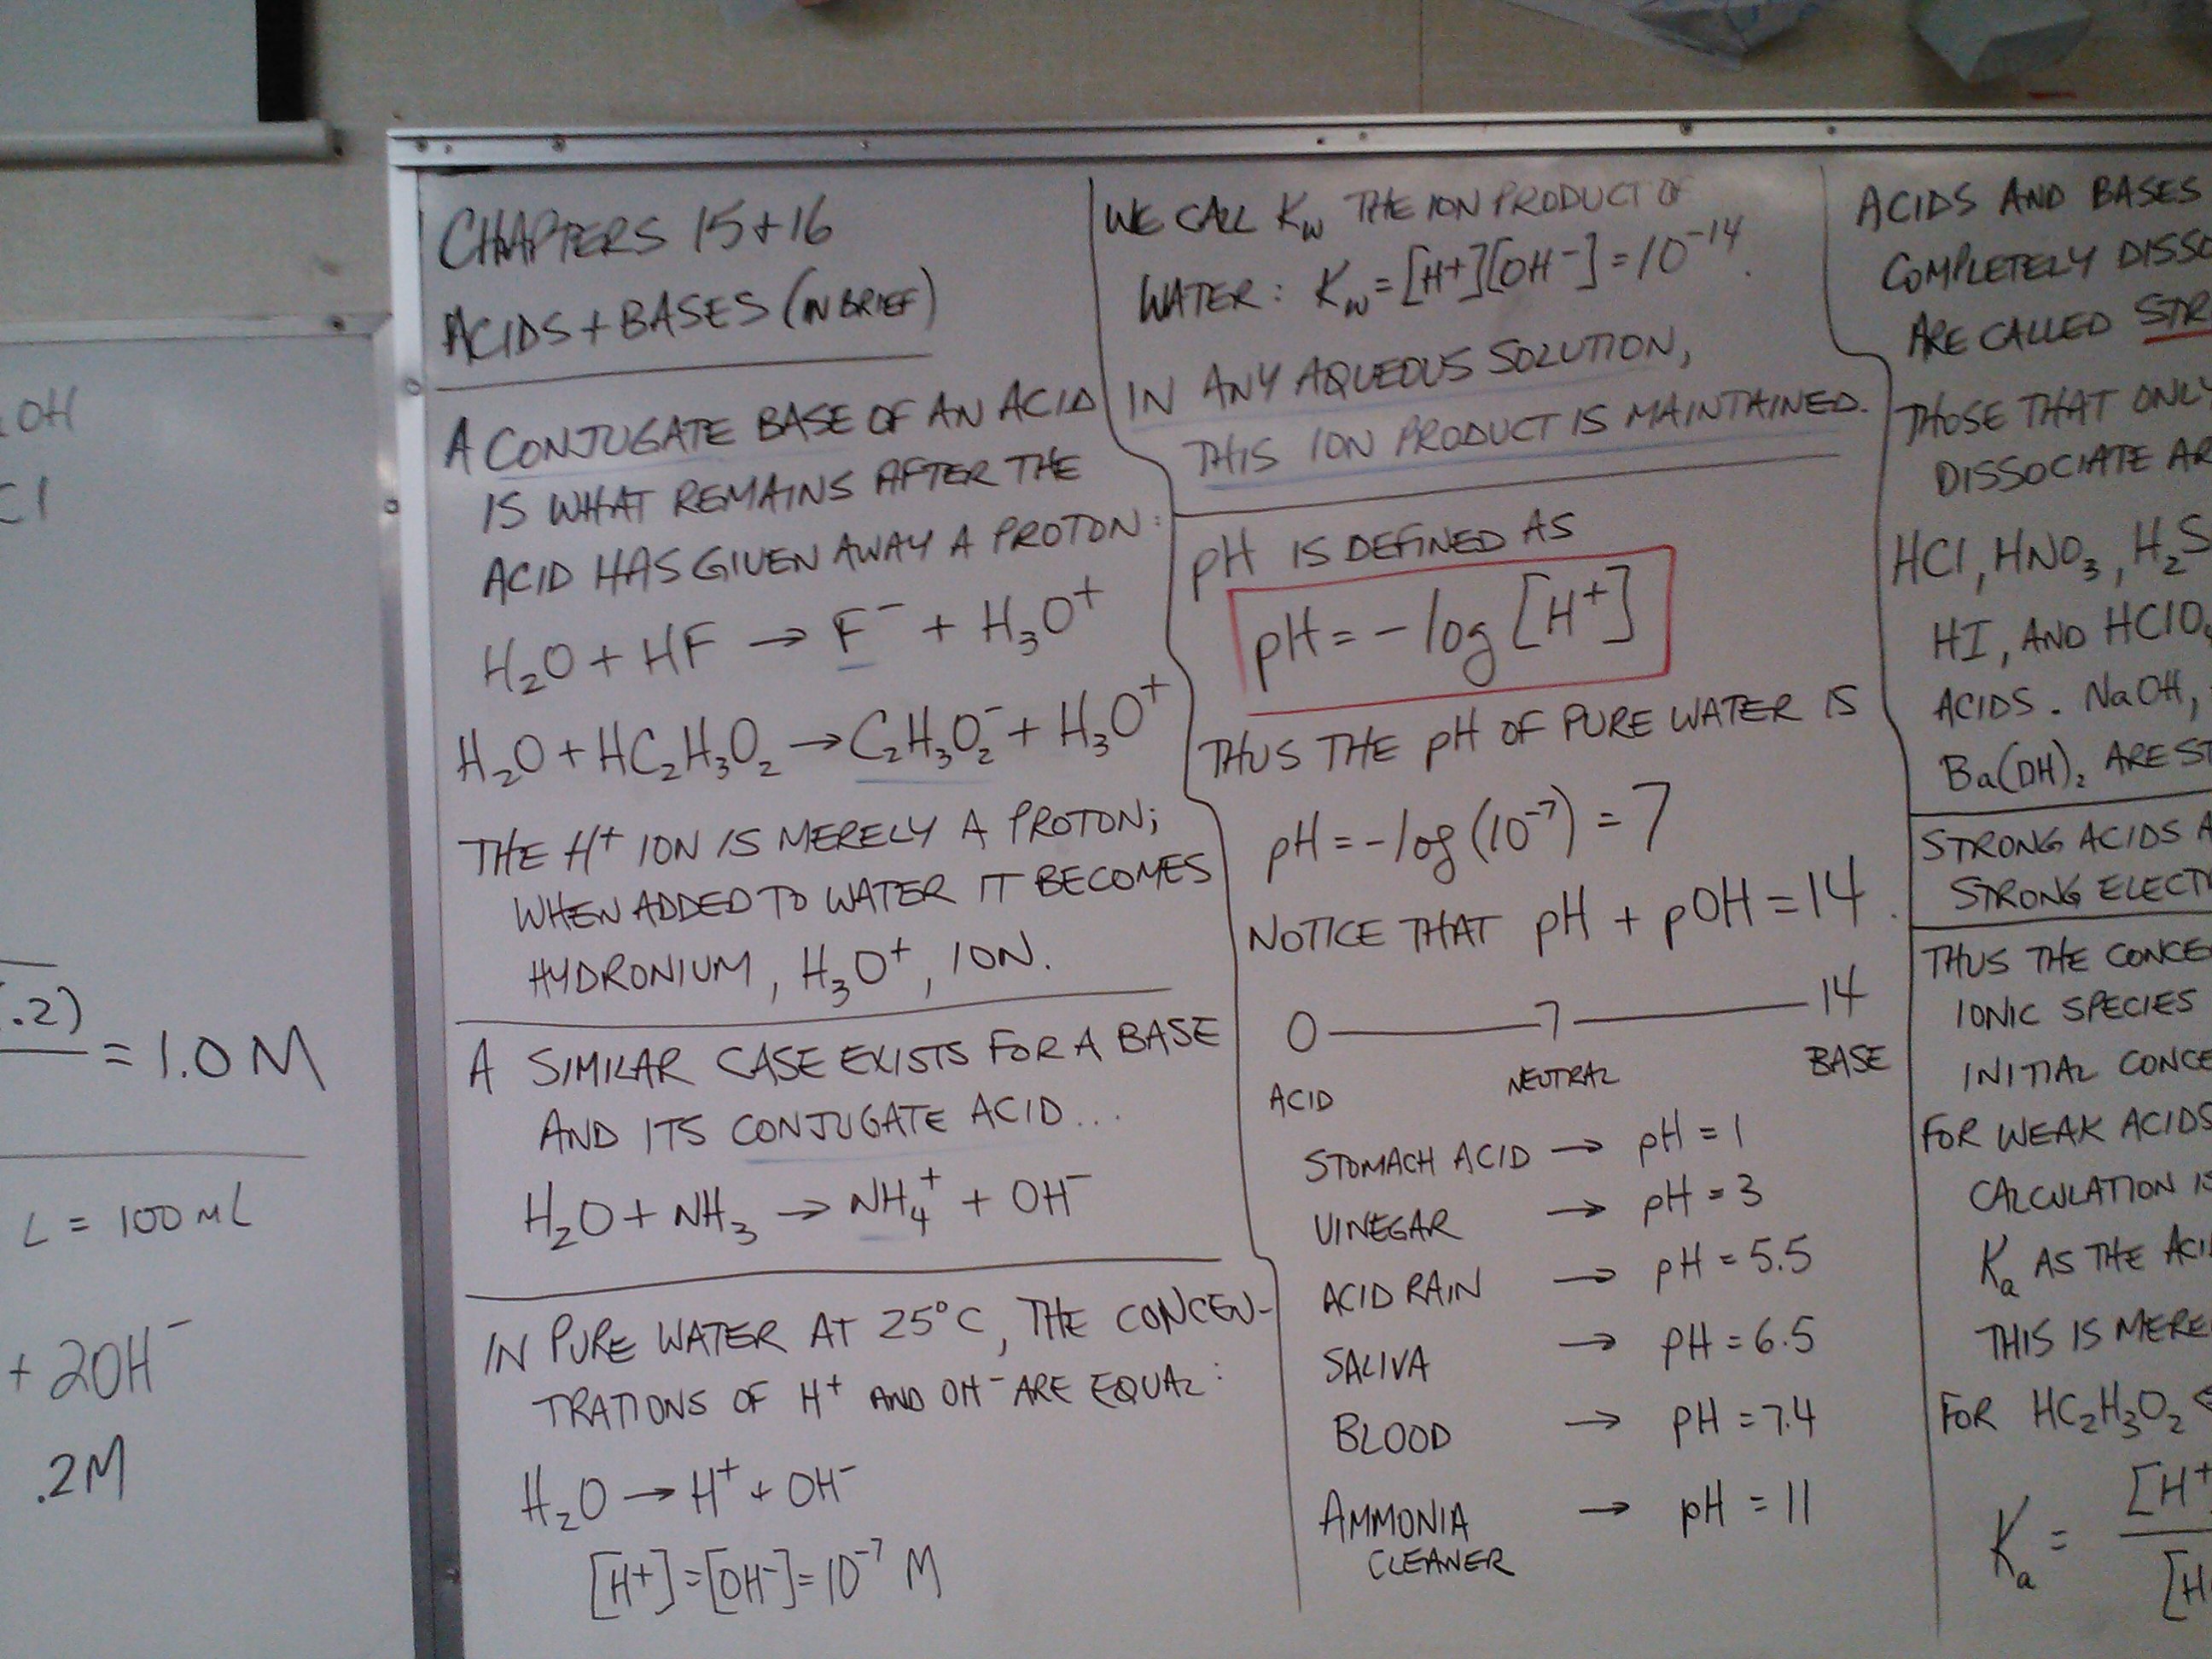 OH
Cl
.2)
= 1.0 M
L = 100 mL
+ 2OH⁻
.2M
CHAPTERS 15+16
ACIDS + BASES (IN BRIEF)
A CONJUGATE BASE OF AN ACID
IS WHAT REMAINS AFTER THE
ACID HAS GIVEN AWAY A PROTON:
H₂O + HF → F⁻ + H₃O⁺
H₂O + HC₂H₃O₂ → C₂H₃O₂⁻ + H₃O⁺
THE H⁺ ION IS MERELY A PROTON;
WHEN ADDED TO WATER IT BECOMES
HYDRONIUM, H₃O⁺, ION.
A SIMILAR CASE EXISTS FOR A BASE
AND ITS CONJUGATE ACID...
H₂O + NH₃ → NH₄⁺ + OH⁻
IN PURE WATER AT 25°C, THE CONCEN-
TRATIONS OF H⁺ AND OH⁻ ARE EQUAL:
H₂O → H⁺ + OH⁻
[H⁺] = [OH⁻] = 10⁻⁷ M
WE CALL Kw THE ION PRODUCT OF
WATER: Kw = [H⁺][OH⁻] = 10⁻¹⁴.
IN ANY AQUEOUS SOLUTION,
THIS ION PRODUCT IS MAINTAINED.
pH IS DEFINED AS
pH = -log [H⁺]
THUS THE pH OF PURE WATER IS
pH = -log (10⁻⁷) = 7
NOTICE THAT pH + pOH = 14.
0 — 7 — 14
ACID NEUTRAL BASE
STOMACH ACID → pH = 1
VINEGAR → pH = 3
ACID RAIN → pH = 5.5
SALIVA → pH = 6.5
BLOOD → pH = 7.4
AMMONIA → pH = 11
CLEANER
ACIDS AND BASES
COMPLETELY DISSO
ARE CALLED STR
THOSE THAT ONLY
DISSOCIATE AR
HCl, HNO₃, H₂S
HI, AND HClO₄
ACIDS. NaOH,
Ba(OH)₂ ARE ST
STRONG ACIDS A
STRONG ELECT
THUS THE CONCE
IONIC SPECIES
INITIAL CONCE
FOR WEAK ACIDS
CALCULATION IS
Ka AS THE ACI
THIS IS MERE
FOR HC₂H₃O₂
Ka = [H⁺
[H